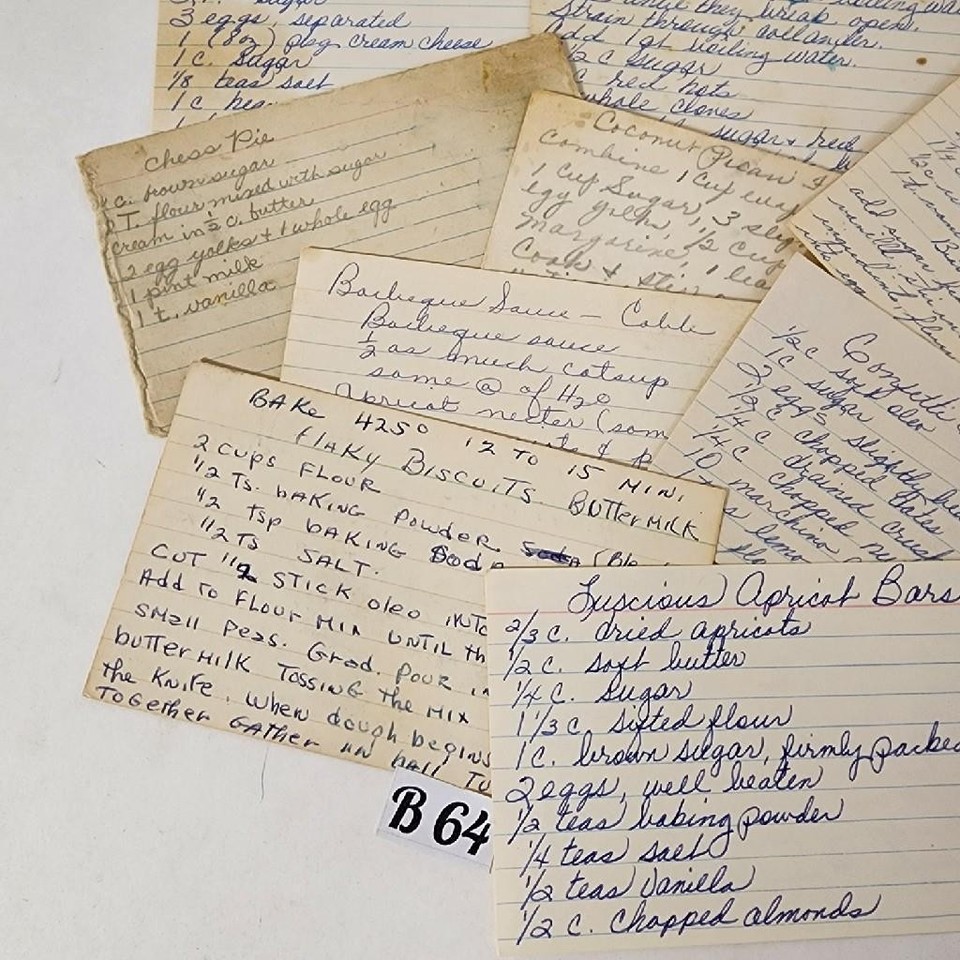 3 eggs, separated
1 (8oz) pkg cream cheese
1 c. sugar
1/8 teas salt
1 c
until they break open.
Strain through collander.
Add 1 qt boiling water.
1/2 c sugar
c red hots
whole cloves
sugar + red
Chess Pie
c. brown sugar
T. flour mixed with sugar
cream in 1/2 c. butter
2 egg yolks + 1 whole egg
1 pint milk
1 t. vanilla
Coconut Pecan
Combine 1 cup
1 cup Sugar, 3
egg yolks, 1/2 cup
margarine, 1
Cook & stir
Barbeque Sauce – Coble
Barbeque sauce
1/2 as much catsup
same @ of H2O
Apricot necter (som
Confetti
1/2 c soft oleo
1 c sugar
2 eggs slightly
1/2 c chopped dates
1/4 c drained
1/4 c chopped
10 marchino
BAKe 425° 12 TO 15 MINI
FlAKy BISCUITS BUTTerMILK
2 CUPS FLOUR
1/2 Ts. bAKING POWDER
1/2 Tsp bAKING Soda
1/2 Ts SALT.
CUT 1 1/2 STICK oleo INTO
Add To FLOUR MIX UNTIL Th
SMAll Peas. Grad. POUR IN
bUTTerMILK TOSSING The MIX
the KNIFe. When dough begINS
TOgeTher GATHer IN bAll
B 64
Luscious Apricot Bars
2/3 c. dried apricots
1/2 c. soft butter
1/4 c. sugar
1 1/3 c. sifted flour
1 c. brown sugar, firmly packed
2 eggs, well beaten
1/2 teas baking powder
1/4 teas salt
1/2 teas vanilla
1/2 c. chopped almonds